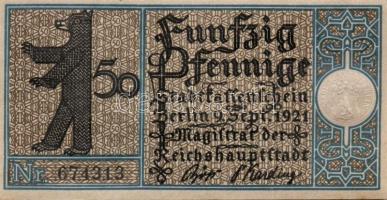 Funfzig
50 Pfennige
Stadtkassenschein
Berlin 9. Sept. 1921
Magistrat der
Reichshauptstadt
Nr. 671313